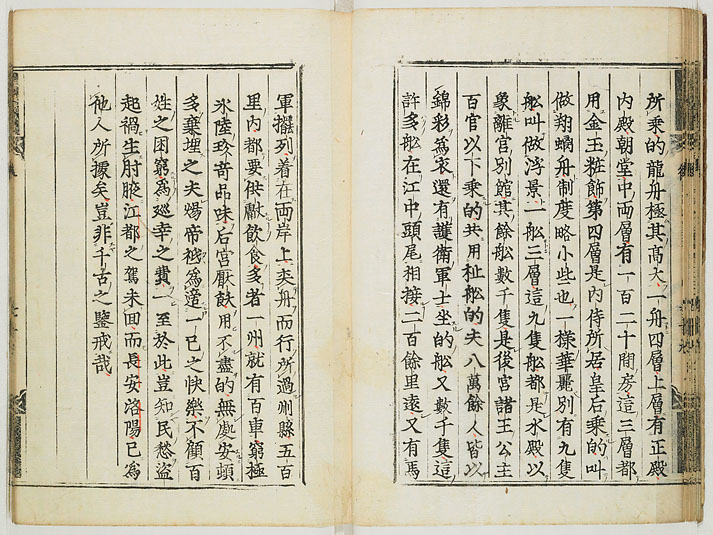 所乘的龍舟極其高大一舟四層上層有正殿
内殿朝堂中兩層有一百二十間房這三層都
用金玉粧飾第四層是内侍所居皇后乘的叫
做翔螭舟制度略小些也一樣華麗別有九隻
舡叫做浮景一舡三層這九隻舡都是水殿以
象離宮別館其餘舡數千隻是後宮諸王公主
百官以下乘的共用扯舡的夫八萬餘人皆以
錦彩為衣還有護衛軍士坐的舡又數千隻這
許多舡在江中頭尾相接二百餘里遠又有馬
軍擺列着在兩岸上夾舟而行所過州縣五百
里内都要供獻飲食多者一州就有百車窮極
水陸珍奇品味后宮厭飫用不盡的無處安頓
多棄埋之夫煬帝極為遊一己之快樂不顧百
姓之困窮為廵幸之費一至於此豈知民愁盗
起禍生肘腋江都之駕未回而長安洛陽已為
他人所據矣豈非千古之鑒戒哉